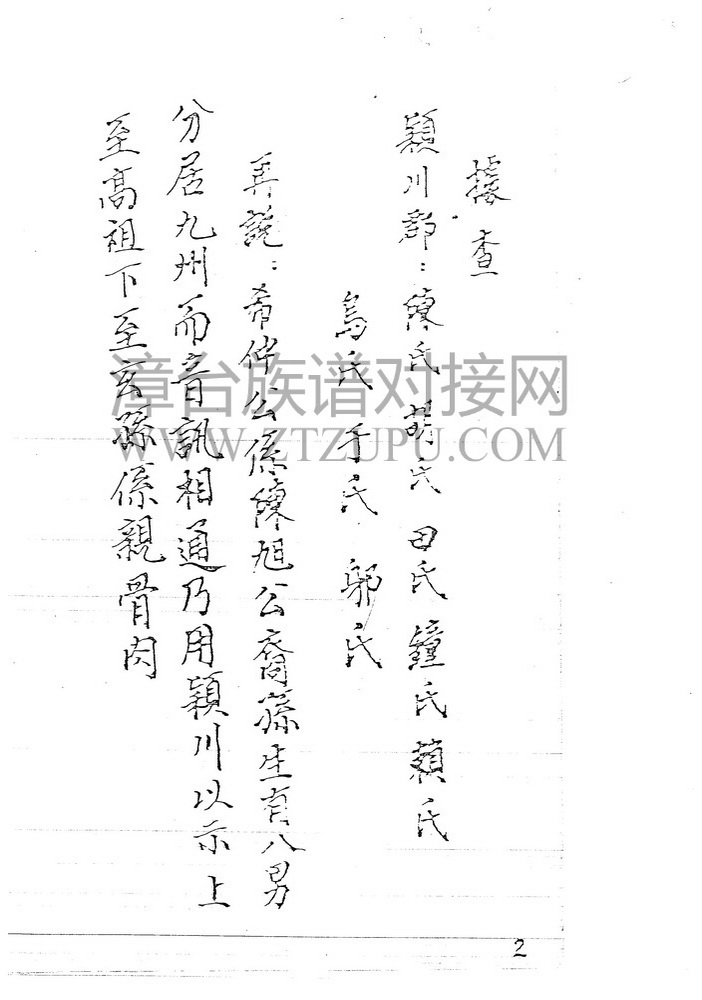 據查
穎川郡：陳氏 胡氏 田氏 鍾氏 賴氏
烏氏 于氏 鄔氏
再說：希伴公係陳旭公裔孫生有八男
分居九州而音訊相通乃用穎川以示上
至高祖下至玄孫係親骨肉
漳台族谱对接网
WWW.ZTZUPU.COM
2